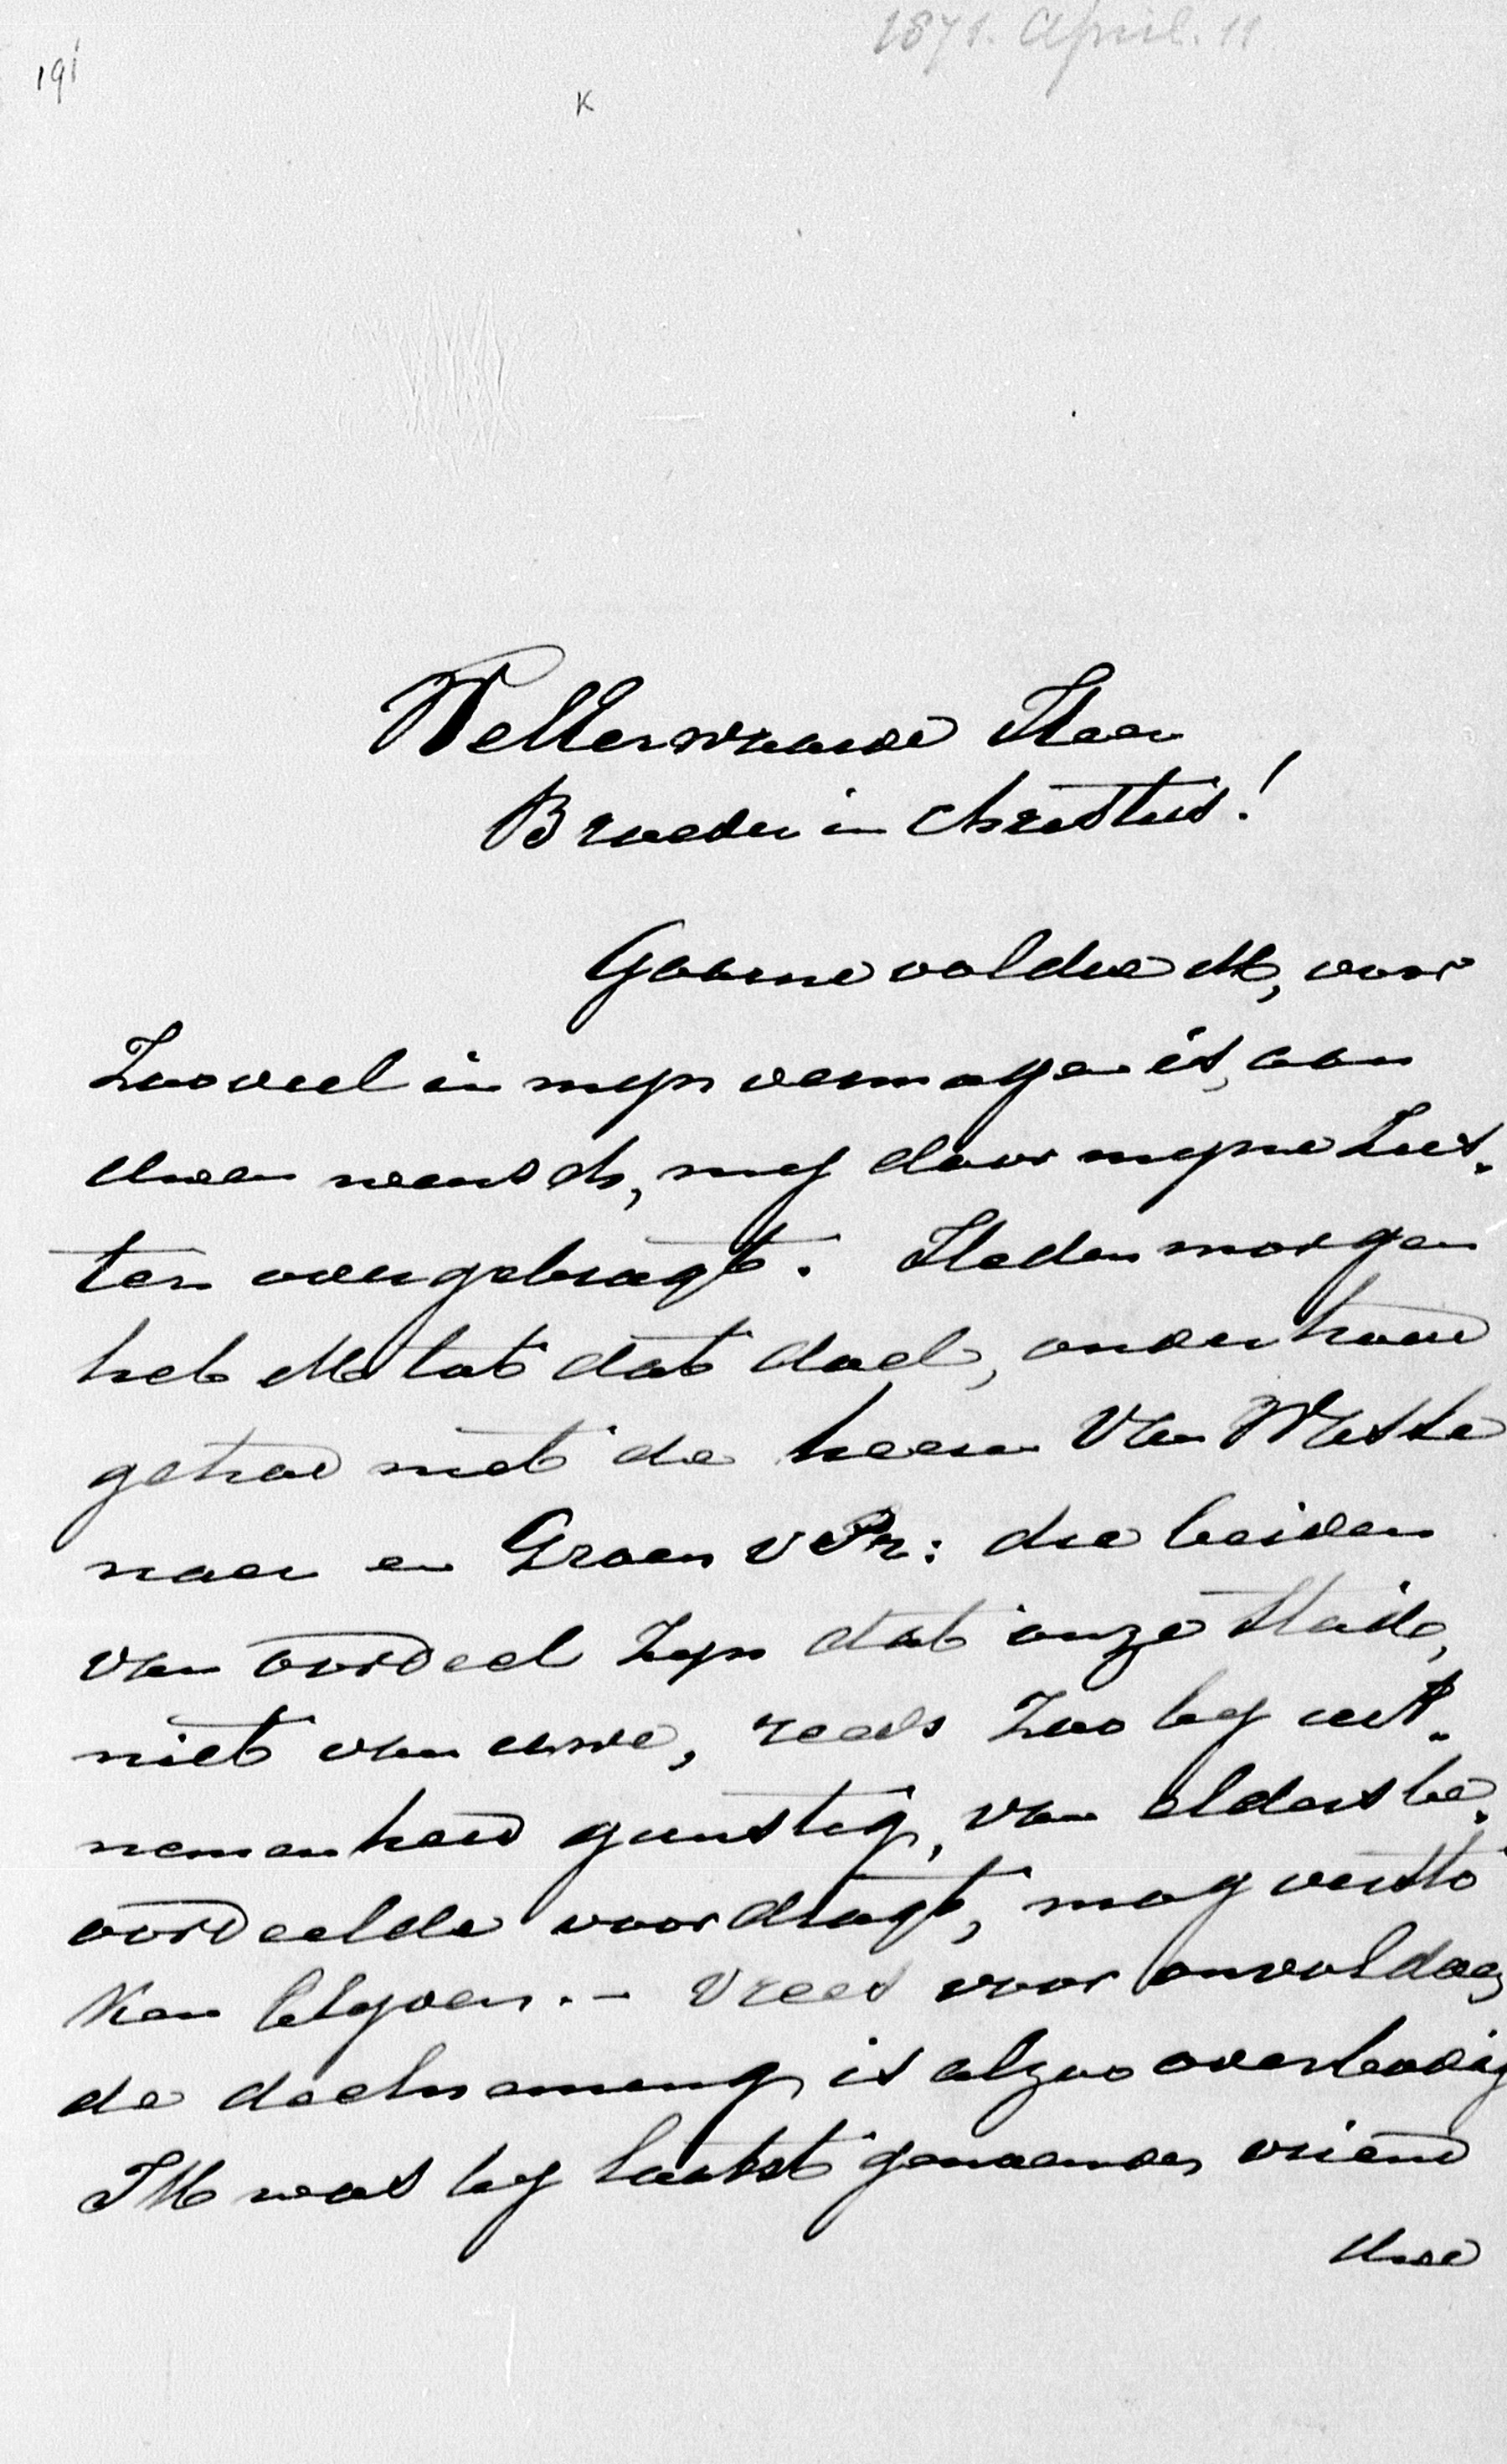 1871. April. 11
191
K
WelEerwaarde Heer
Broeder in Christus!
Gaarne voldoe ik, voor
Zooveel in mijn vermogen is, aan
Uwen wensch, mij door mijne Zus-
ter overgebragt. Heden morgen
heb ik tot dat doel, onderhoud
gehad met de heeren Van Waste
naer en Groen v Pr: die beiden
van oordeel Zijn dat onze Stad,
niet van uwe, reeds Zoo bij uit-
nemenheid gunstig, van elders be-
oordeelde voordragt, mag versto
ken blijven. – Vrees voor onvoldoen
de deelneming is alzoo overbodig
Ik was bij laatst genoemden vriend
Uwe